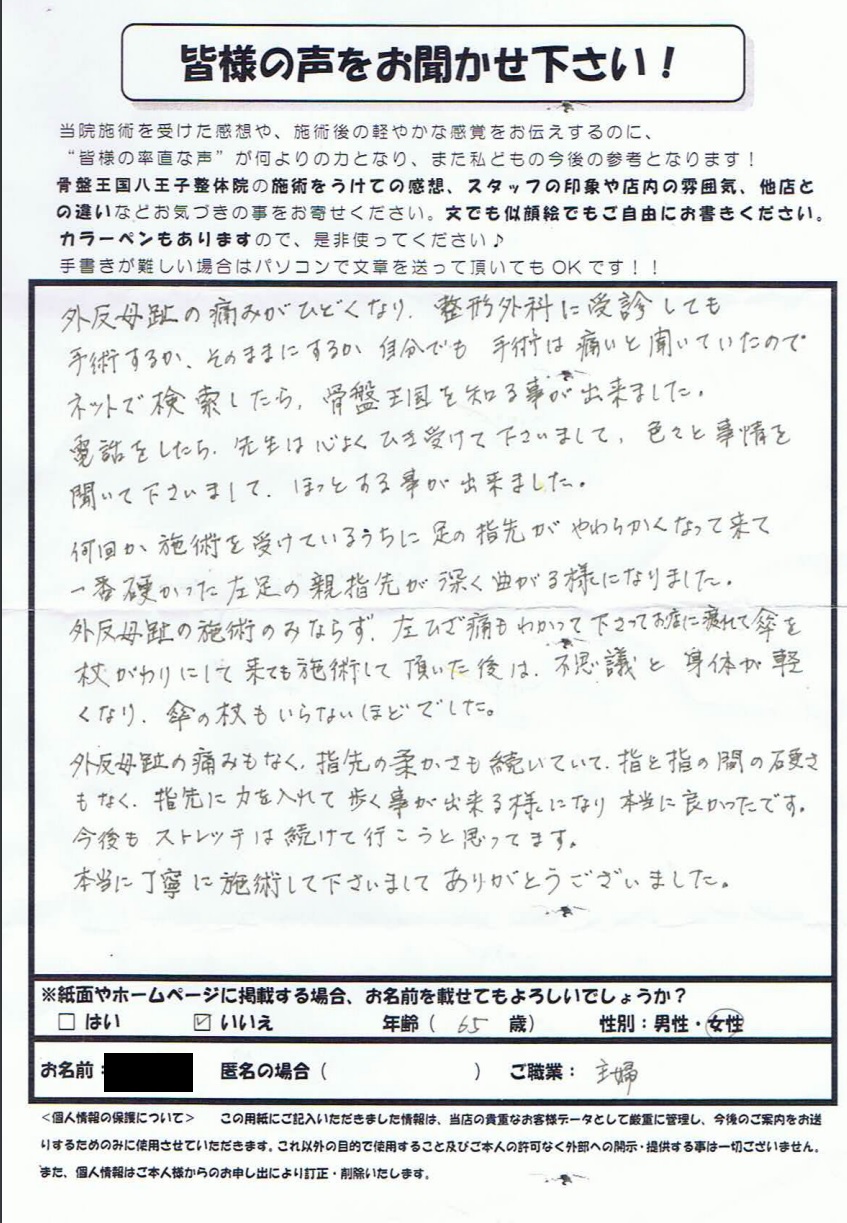 皆様の声をお聞かせ下さい！
当院施術を受けた感想や、施術後の軽やかな感覚をお伝えするのに、
“皆様の率直な声”が何よりの力となり、また私どもの今後の参考となります！
骨盤王国八王子整体院の施術をうけての感想、スタッフの印象や店内の雰囲気、他店と
の違いなどお気づきの事をお寄せください。文でも似顔絵でもご自由にお書きください。
カラーペンもありますので、是非使ってください♪
手書きが難しい場合はパソコンで文章を送って頂いてもOKです！！
外反母趾の痛みがひどくなり、整形外科に受診しても
手術するか、そのままにするか 自分でも 手術は痛いと聞いていたので
ネットで検索したら、骨盤王国を知る事が出来ました。
電話をしたら、先生は心よくひき受けて下さいまして、色々と事情を
聞いて下さいまして、ほっとする事が出来ました。
何回か施術を受けているうちに足の指先がやわらかくなって来て
一番硬かった左足の親指先が深く曲がる様になりました。
外反母趾の施術のみならず、左ひざ痛もわかって下さってお店に疲れて傘を
杖がわりにして来ても施術して頂いた後は、不思議と身体が軽
くなり、傘の杖もいらないほどでした。
外反母趾の痛みもなく、指先の柔かさも続いていて、指と指の間の硬さ
もなく、指先に力を入れて歩く事が出来る様になり本当に良かったです。
今後もストレッチは続けて行こうと思ってます。
本当に丁寧に施術して下さいましてありがとうございました。
※紙面やホームページに掲載する場合、お名前を載せてもよろしいでしょうか？
□ はい ☑ いいえ 年齢（ 65 歳） 性別：男性・女性
お名前： 匿名の場合（ ） ご職業： 主婦
＜個人情報の保護について＞ この用紙にご記入いただきました情報は、当店の貴重なお客様データとして厳重に管理し、今後のご案内をお送
りするためのみに使用させていただきます。これ以外の目的で使用すること及びご本人の許可なく外部への開示・提供する事は一切ございません。
また、個人情報はご本人様からのお申し出により訂正・削除いたします。